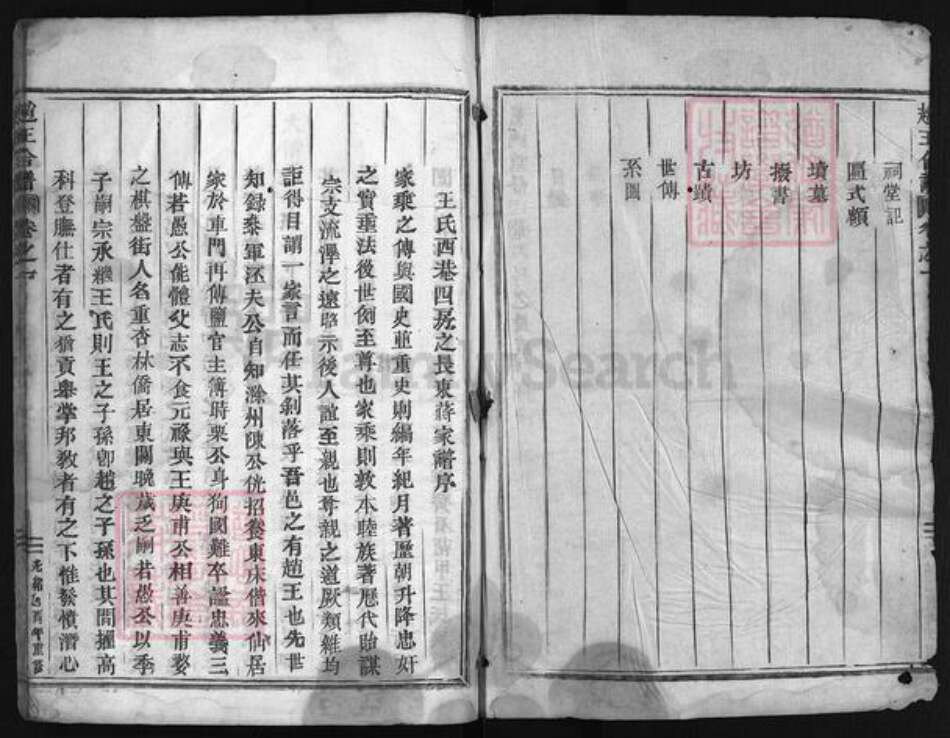 趙王合譜 卷之一
祠堂記
匾式額
墳墓
掇書
坊
古蹟
世傳
系圖
王氏西巷四房之長東蔣家譜序
家乘之傳與國史並重史則編年紀月著歷朝升降忠奸
之實重法後世例至尊也家乘則敦本睦族著歷代貽謀
宗支流澤之遠昭示後人誼至親也尊親之道厥類維均
詎得目謂一家言而任其剝落乎吾邑之有趙王也先世
知錄參軍泾夫公自知滁州陳公侊招養東床偕來仙居
家於車門再傳鹽官主簿時栗公身狥國難卒諡忠義三
傳若愚公能體父志不食元祿與王庚甫公相善庚甫婺
之棋盤街人名重杏林僑居東關晚歲乏嗣若愚公以季
子嗣宗承繼王氏則王之子孫卽趙之子孫也其間擢高
科登膴仕者有之猶貢舉掌邦敎者有之下惟發憤潛心
趙王合譜 卷之一
光緒 酉年重修
FamilySearch